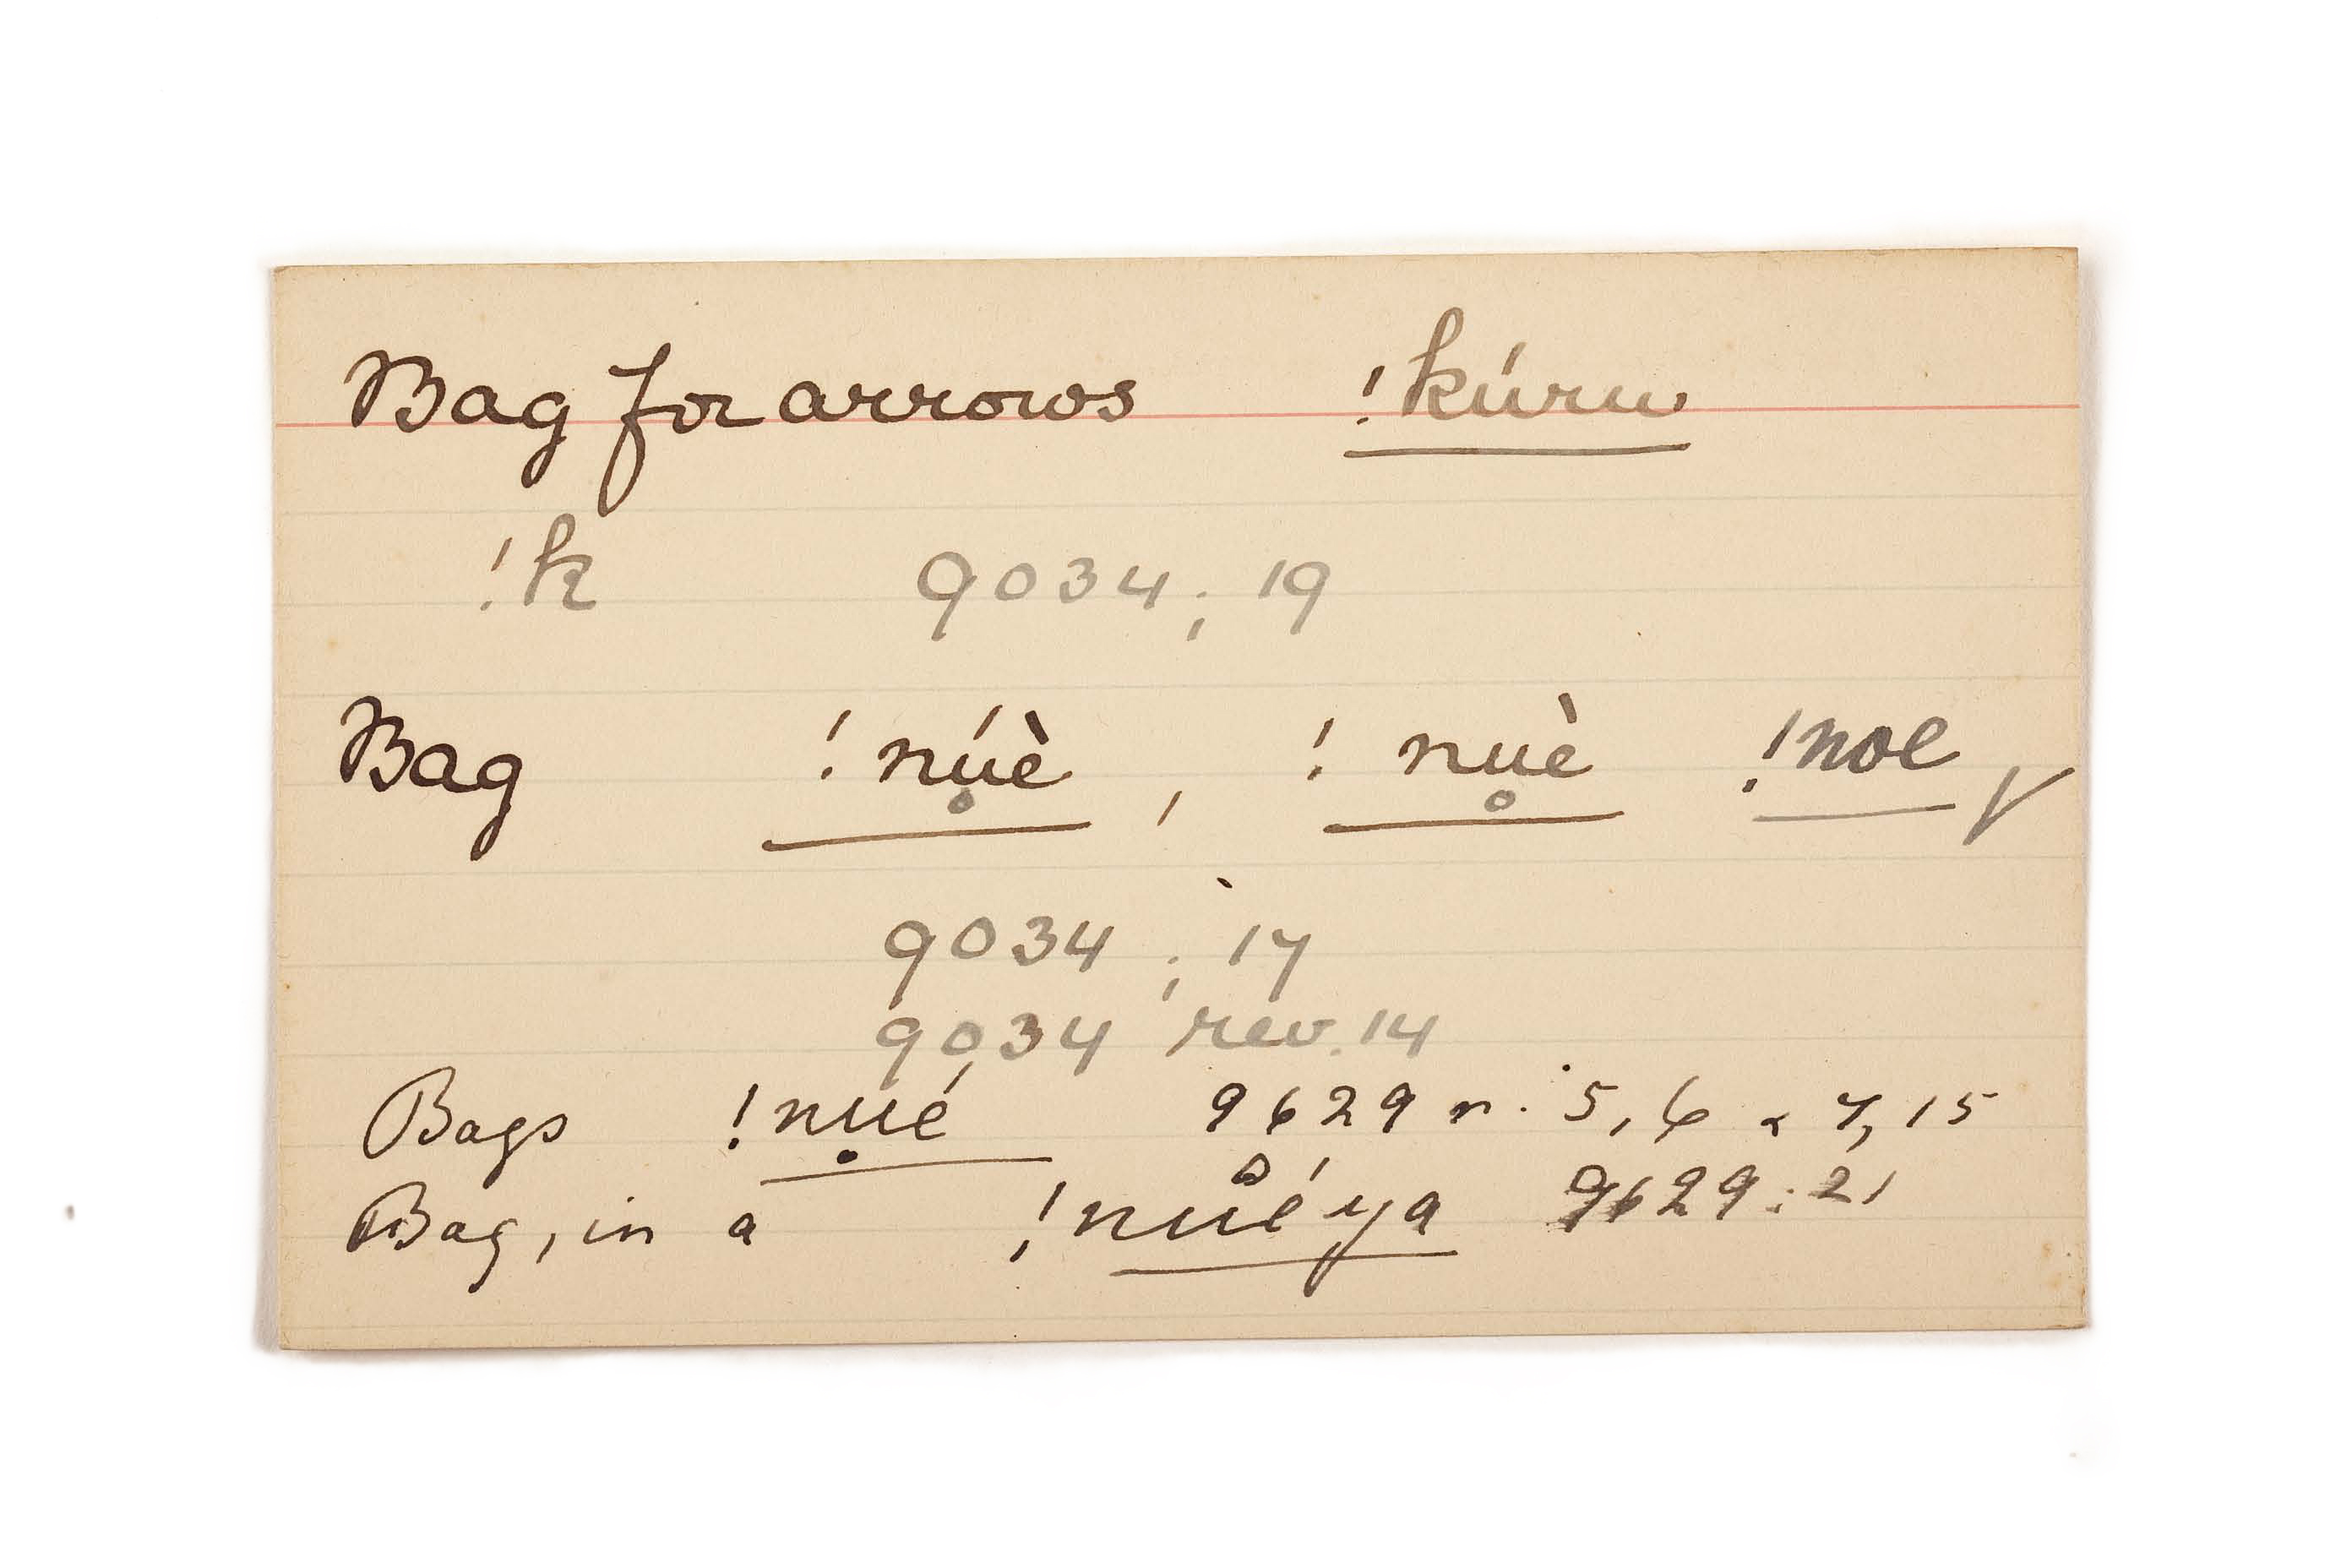 Bag for arrows !kúru
!k 9034; 19
Bag !nú̥è, !nu̥è !noe ✓
9034; 17
9034 rev. 14
Bags !nu̥é 9629 r. 5, 6 & 7, 15
Bag, in a !nůé ya 9629: 21